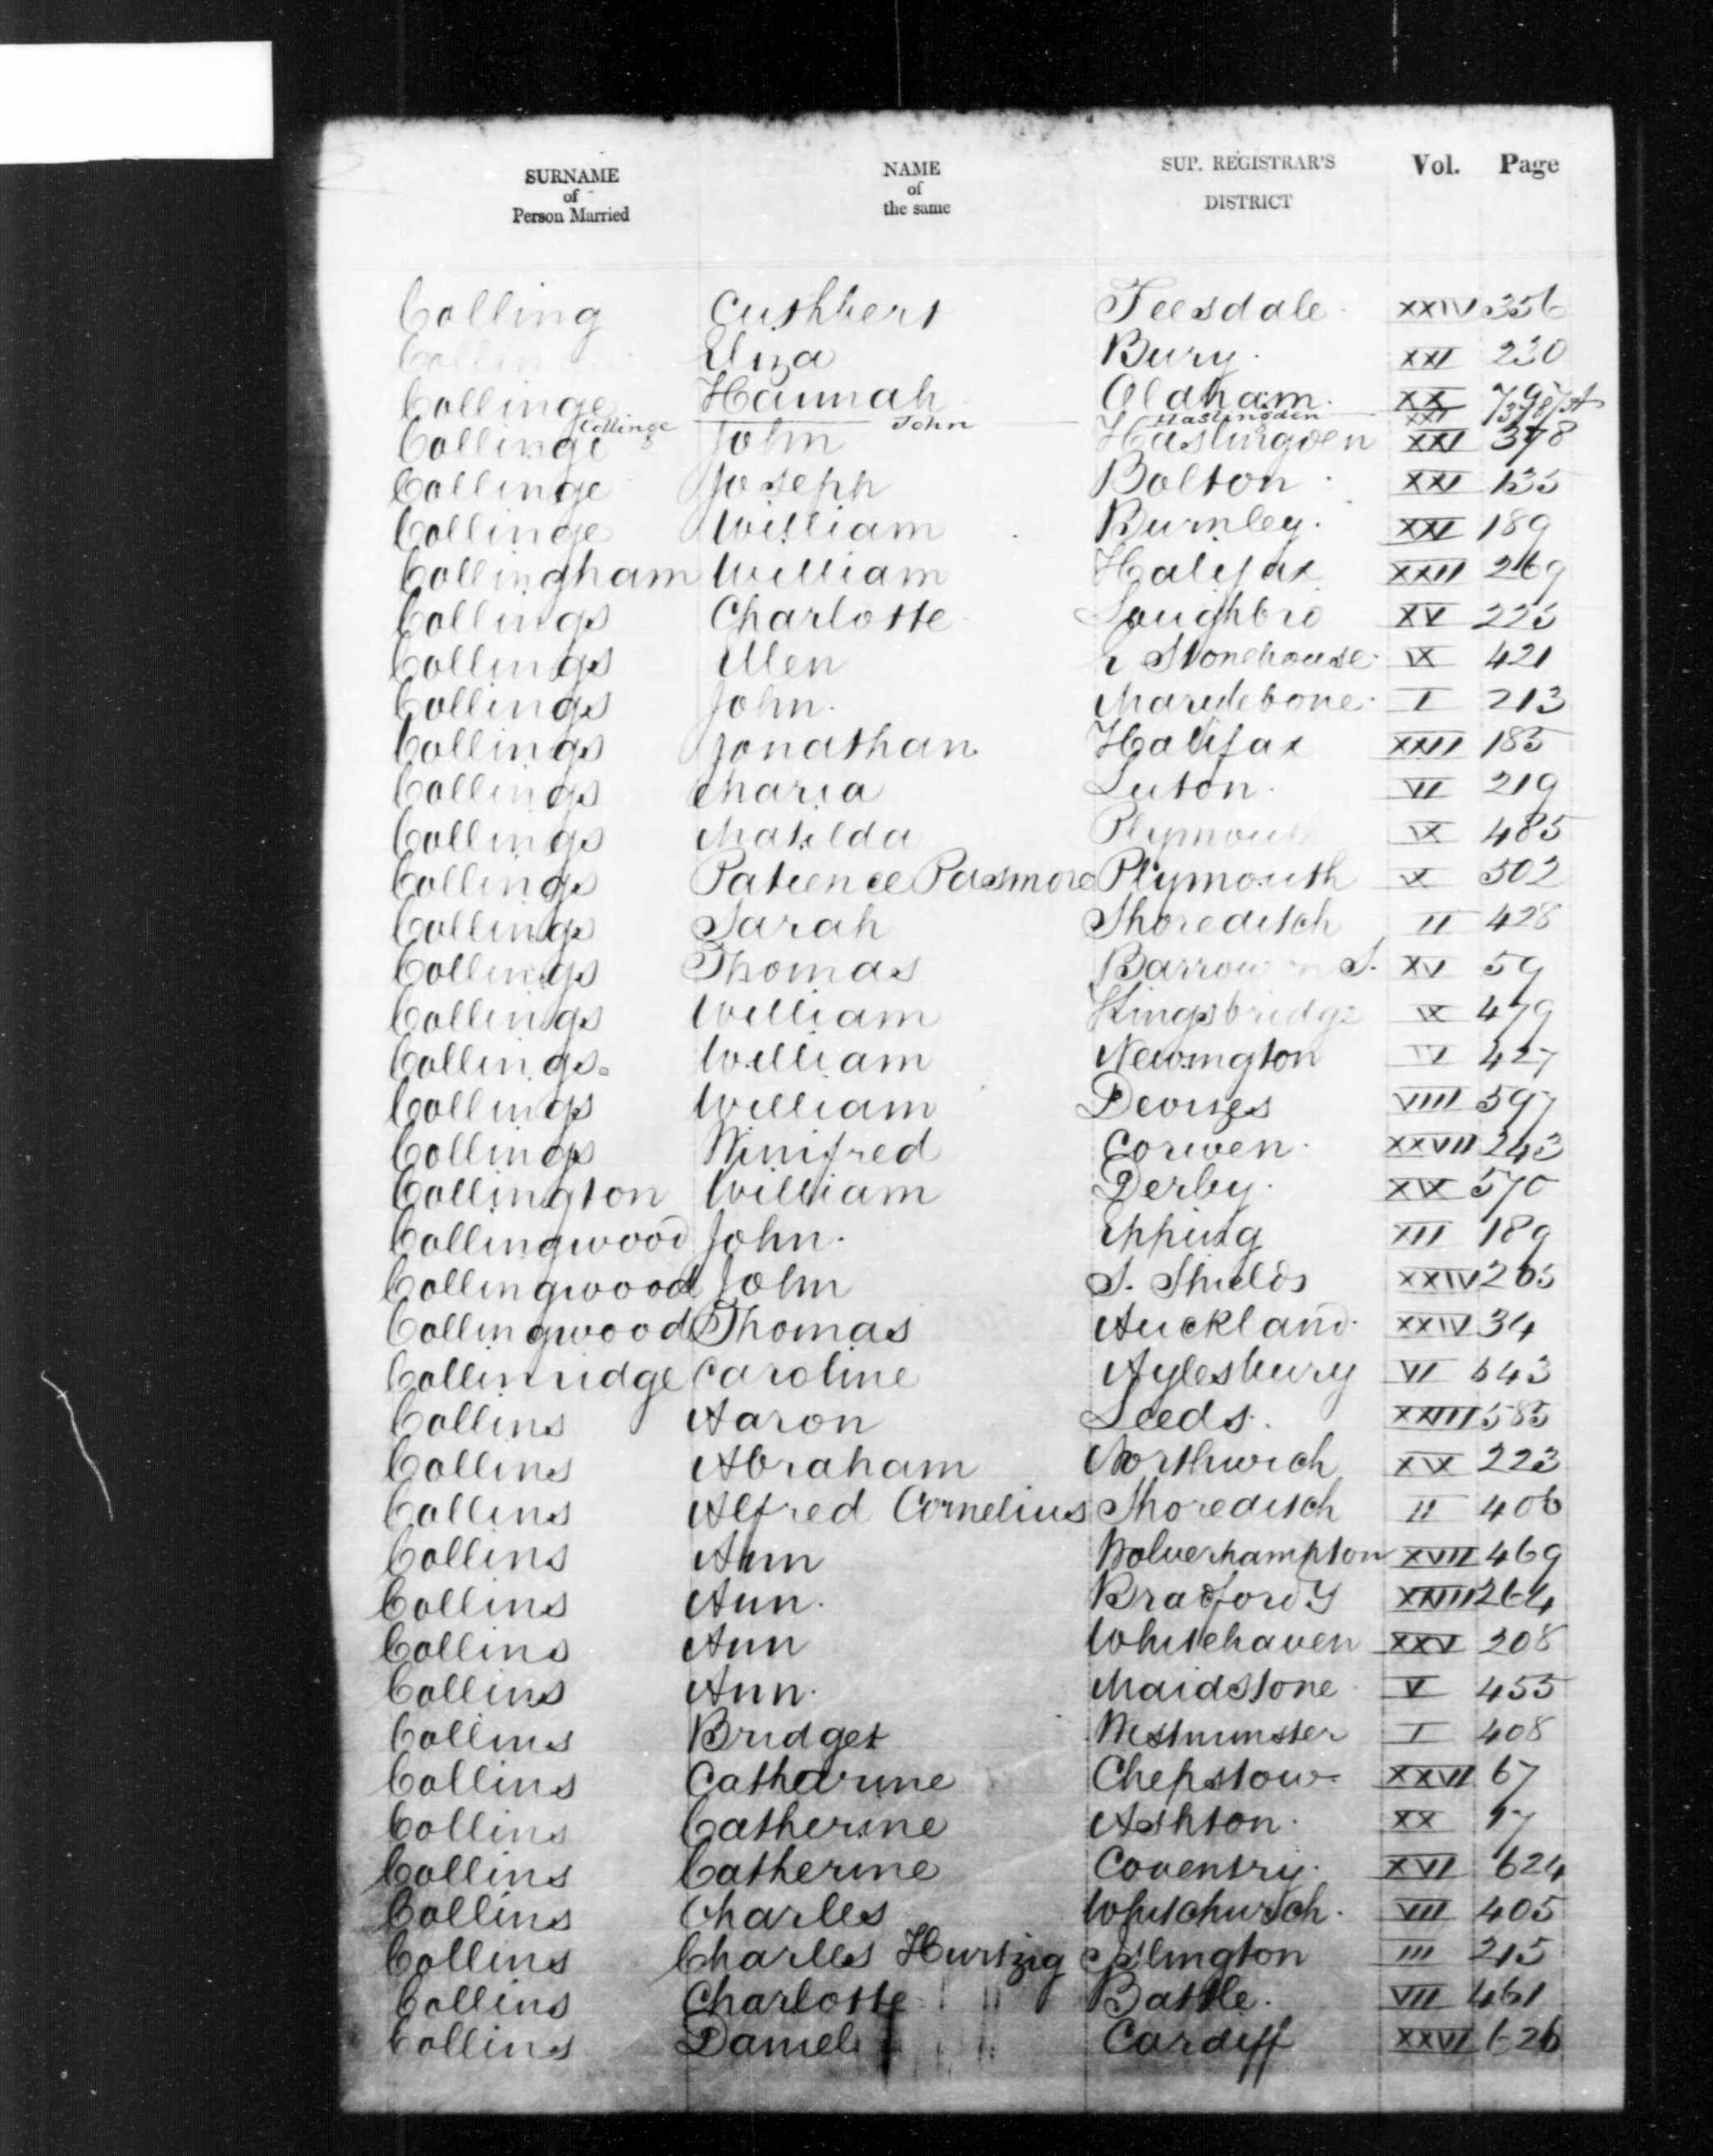 SURNAME of Person Married NAME of the same SUP. REGISTRAR'S DISTRICT Vol. Page
Colling Cuthbert Teesdale XXIV 356
Collin Eliza Bury XXI 230
Collinge Hannah Oldham XX 795
Collinge John Haslingden XXI 378/A
Collinge John Haslingden XXI 378
Collinge Joseph Bolton XXI 135
Collinge William Burnley XXI 189
Collingham William Halifax XXII 269
Collings Charlotte Loughbro XV 225
Collings Ellen E Stonehouse IX 421
Collings John Marylebone I 213
Collings Jonathan Halifax XXII 185
Collings Maria Luton VI 219
Collings Matilda Plymouth IX 485
Collings Patience Pasmore Plymouth IX 502
Collings Sarah Shoreditch II 428
Collings Thomas Barrow S. XV 59
Collings William Kingsbridge IX 479
Collings William Newington IV 427
Collings William Devizes VIII 597
Collings Winifred Corwen XXVII 243
Collington William Derby XIX 570
Collingwood John Epping XII 189
Collingwood John S. Shields XXIV 265
Collingwood Thomas Auckland XXIV 34
Collinridge Caroline Aylesbury VI 643
Collins Aaron Leeds XXIII 585
Collins Abraham Northwich XIX 223
Collins Alfred Cornelius Shoreditch II 406
Collins Ann Wolverhampton XVII 469
Collins Ann Bradford Y XXIII 264
Collins Ann Whitehaven XXV 208
Collins Ann Maidstone V 455
Collins Bridget Westminster I 408
Collins Catharine Chepstow XXVI 67
Collins Catherine Ashton XX 17
Collins Catherine Coventry XVI 624
Collins Charles Whitchurch VII 405
Collins Charles Hurtzig Islington III 215
Collins Charlotte Battle VII 461
Collins Daniel Cardiff XXVI 626